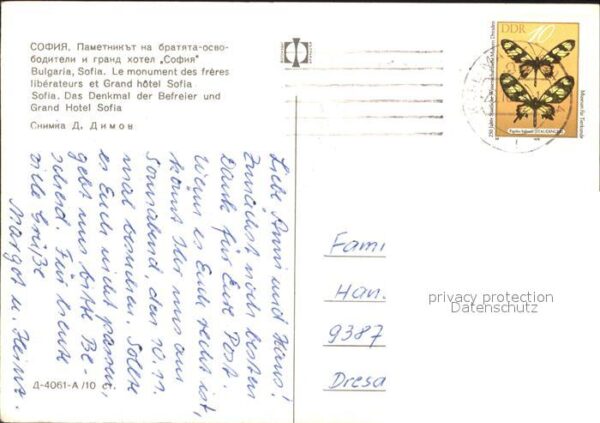 СОФИЯ. Паметникът на братята-осво-
бодители и гранд хотел „София"
Bulgaria, Sofia. Le monument des frères
libérateurs et Grand hôtel Sofia
Sofia. Das Denkmal der Befreier und
Grand Hotel Sofia
Снимка Д. Димов
Liebe Anni und Hans!
Zunächst noch besten
Dank für Eure Post.
Wenn es Euch recht ist,
könnt Ihr uns am
Sonnabend, den 10.11.
mal besuchen. Sollte
es Euch nicht passen,
gebt uns bitte Be-
scheid. Für heute
viele Grüße
Margot u. Heinz.
Д-4061-А/10
DDR 10
Museum für Tierkunde
Fami
Han.
9387
Dresa
privacy protection
Datenschutz